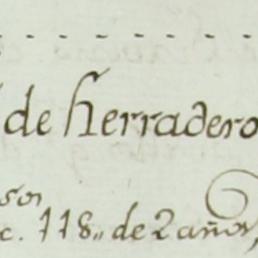 de Herradero
sos
c. 118,, de 2 años,